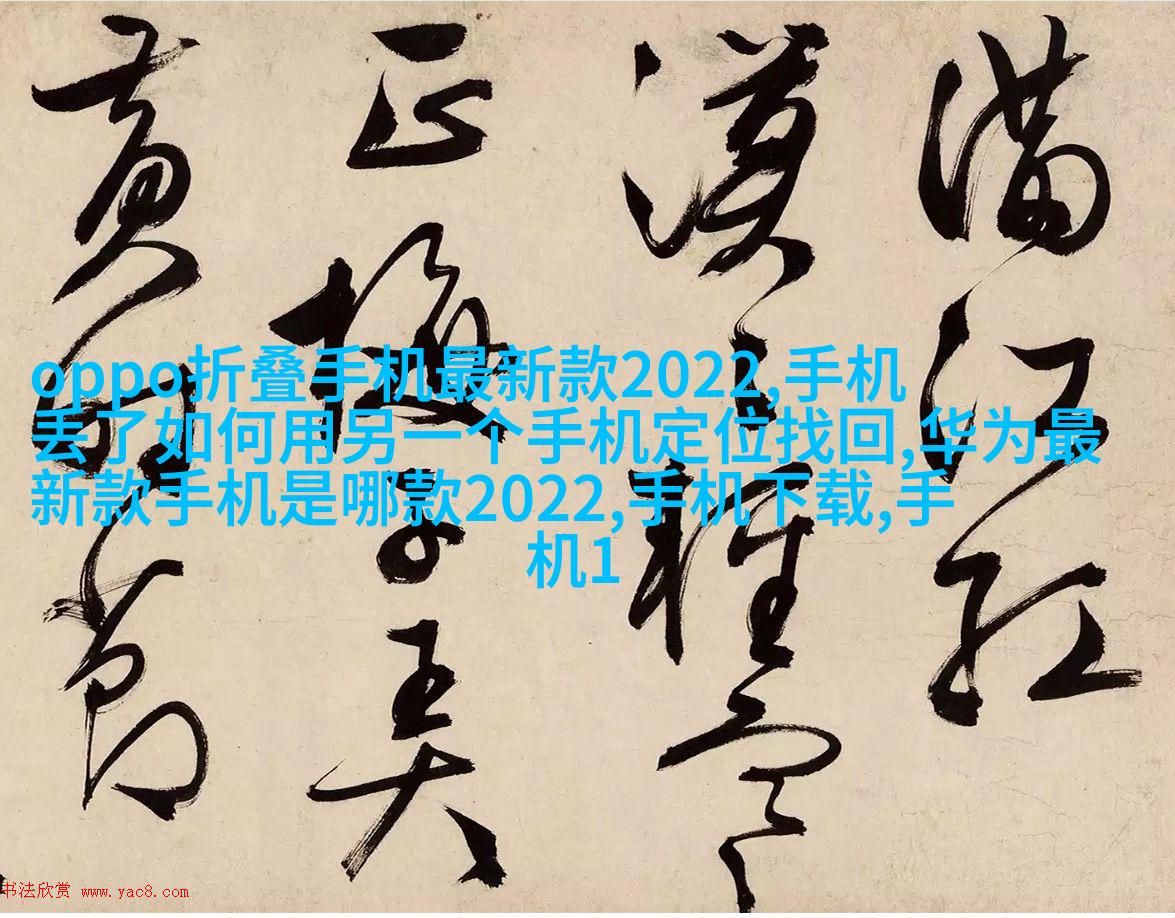 滿江紅
漠々輕
正梅子弄
黃時節
oppo折叠手机最新款2022,手机
丢了如何用另一个手机定位找回,华为最
新款手机是哪款2022,手机下载,手
机1
书法欣赏 www.yac8.com